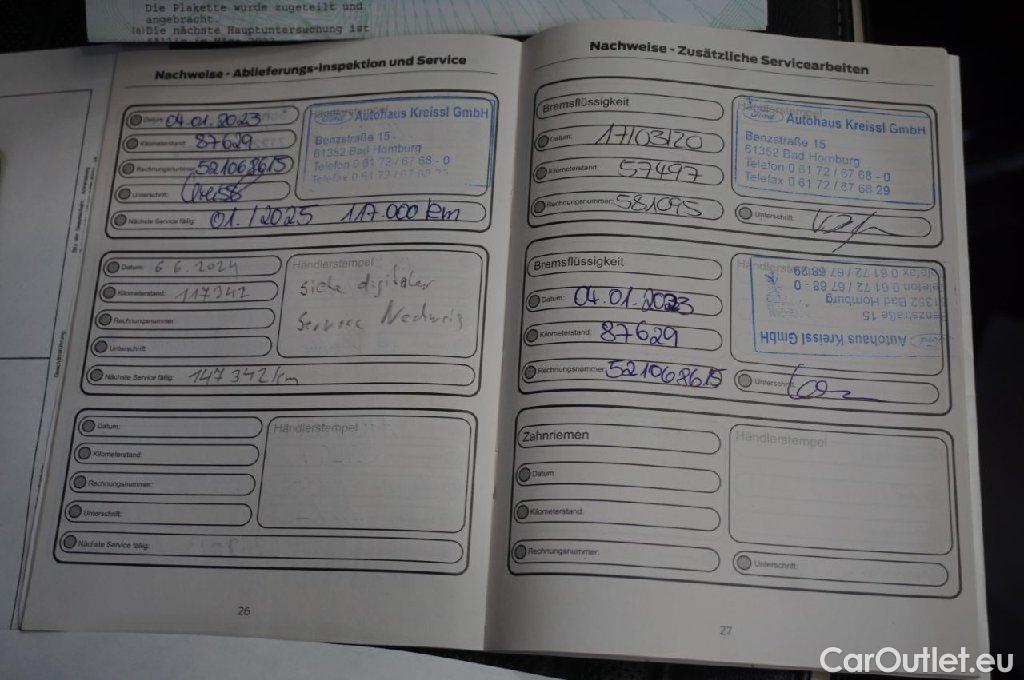 Die Plakette wurde zugeteilt und
angebracht.
Die nächste Hauptuntersuchung ist
Nachweise - Ablieferungs-Inspektion und Service
Datum: 04.01.2023
Kilometerstand: 87629
Rechnungsnummer: 521068615
Unterschrift:
Nächste Service fällig: 01./2025 117.000 km
Autohaus Kreissl GmbH
Benzstraße 15
61352 Bad Homburg
Telefon 0 61 72 / 67 68 - 0
Telefax 0 61 72 / 67 68 29
Datum: 6 6. 2024
Kilometerstand: 117342
Rechnungsnummer:
Unterschrift:
Nächste Service fällig: 147342 km
Händlerstempel
siehe digitaler
Service Nachweis
Datum:
Kilometerstand:
Rechnungsnummer:
Unterschrift:
Nächste Service fällig:
Händlerstempel
26
Nachweise - Zusätzliche Servicearbeiten
Bremsflüssigkeit
Datum: 17/03/20
Kilometerstand: 57497
Rechnungsnummer: 581095
Händlerstempel
Autohaus Kreissl GmbH
Benzstraße 15
61352 Bad Homburg
Telefon 0 61 72 / 67 68 - 0
Telefax 0 61 72 / 67 68 29
Unterschrift:
Bremsflüssigkeit
Datum: 04.01.2023
Kilometerstand: 87629
Rechnungsnummer: 521068615
Autohaus Kreissl GmbH
Benzstraße 15
61352 Bad Homburg
Telefon 0 61 72 / 67 68 - 0
Telefax 0 61 72 / 67 68 29
Unterschrift:
Zahnriemen
Datum:
Kilometerstand:
Rechnungsnummer:
Händlerstempel
Unterschrift:
27
CarOutlet.eu